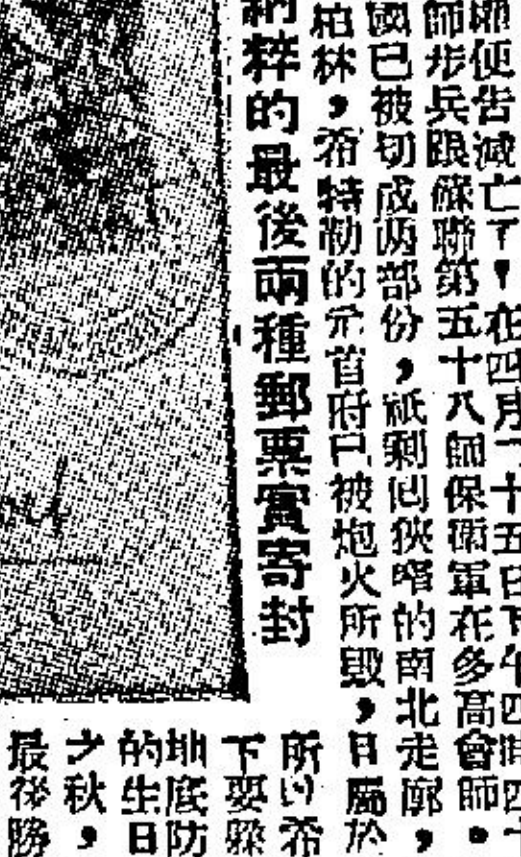 便告滅亡了，在四月二十五日下午四時四十
師步兵跟蘇聯第五十八師保衛軍在多高會師。
國已被切成两部份，祇剩回狹窄的南北走廊，
柏林，希特勒的元首府已被炮火所毀，且屬於
納粹的最後兩種郵票實寄封
所以希
下要躱
地底防
的生日
之秋，
最後勝